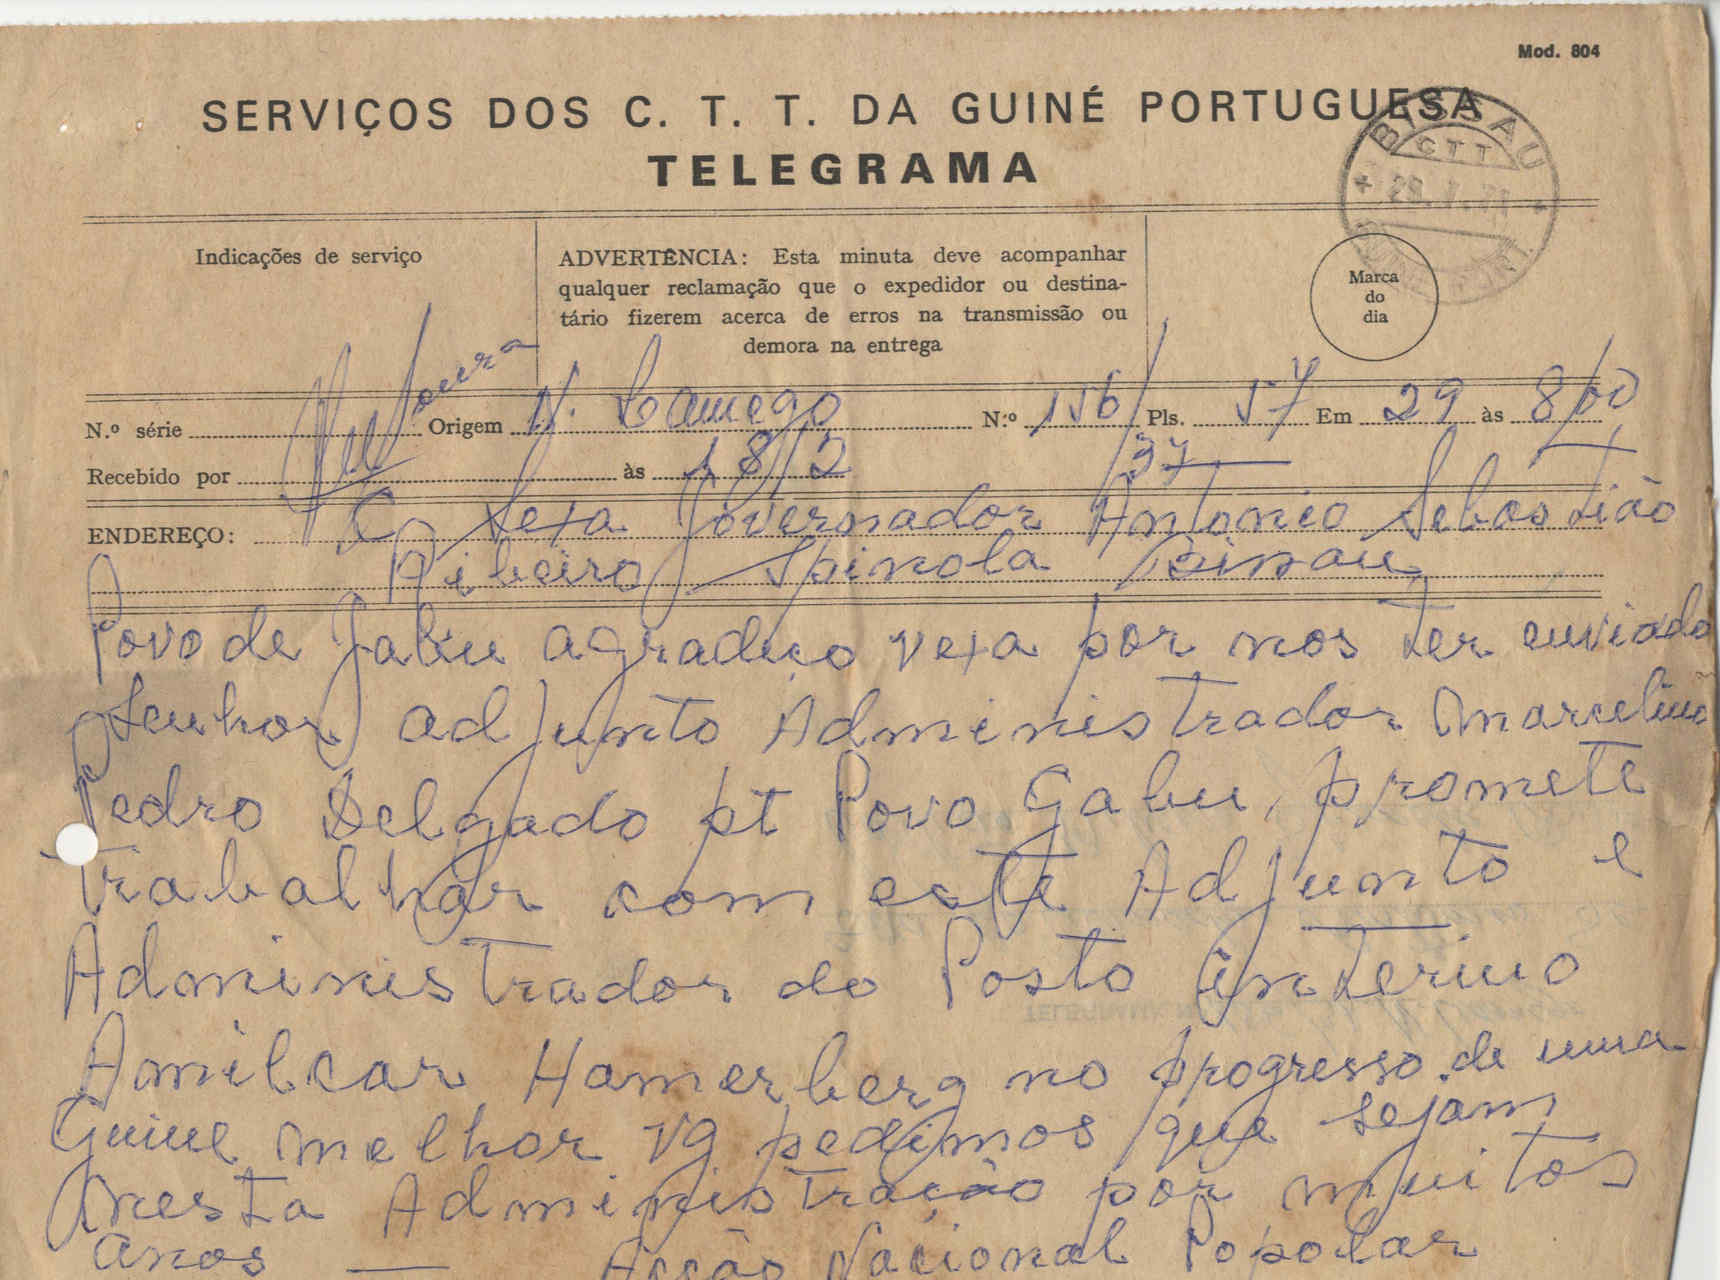 Mod. 804
SERVIÇOS DOS C. T. T. DA GUINÉ PORTUGUESA
TELEGRAMA
BISSAU
CTT
Indicações de serviço
ADVERTÊNCIA: Esta minuta deve acompanhar
qualquer reclamação que o expedidor ou destina-
tário fizerem acerca de erros na transmissão ou
demora na entrega
Marca
do
dia
N.º série Origem N. Lamego N.º 156/ Pls. 57 Em 29 às 8/00
Recebido por às 18/12 37
ENDEREÇO: Sexa Governador Antonio Sebastião
Ribeiro Spinola Bissau
Povo de Gabu agradeço vexa por nos ter enviado
Senhor adjunto Administrador Marcelino
Pedro Delgado pt Povo Gabu, promete
trabalhar com este Adjunto e
Administrador do Posto interino
Amilcar Hamerberg no progresso de uma
Guine melhor vg pedimos que sejam
nesta Administração por muitos
anos — Acção Nacional Popolar